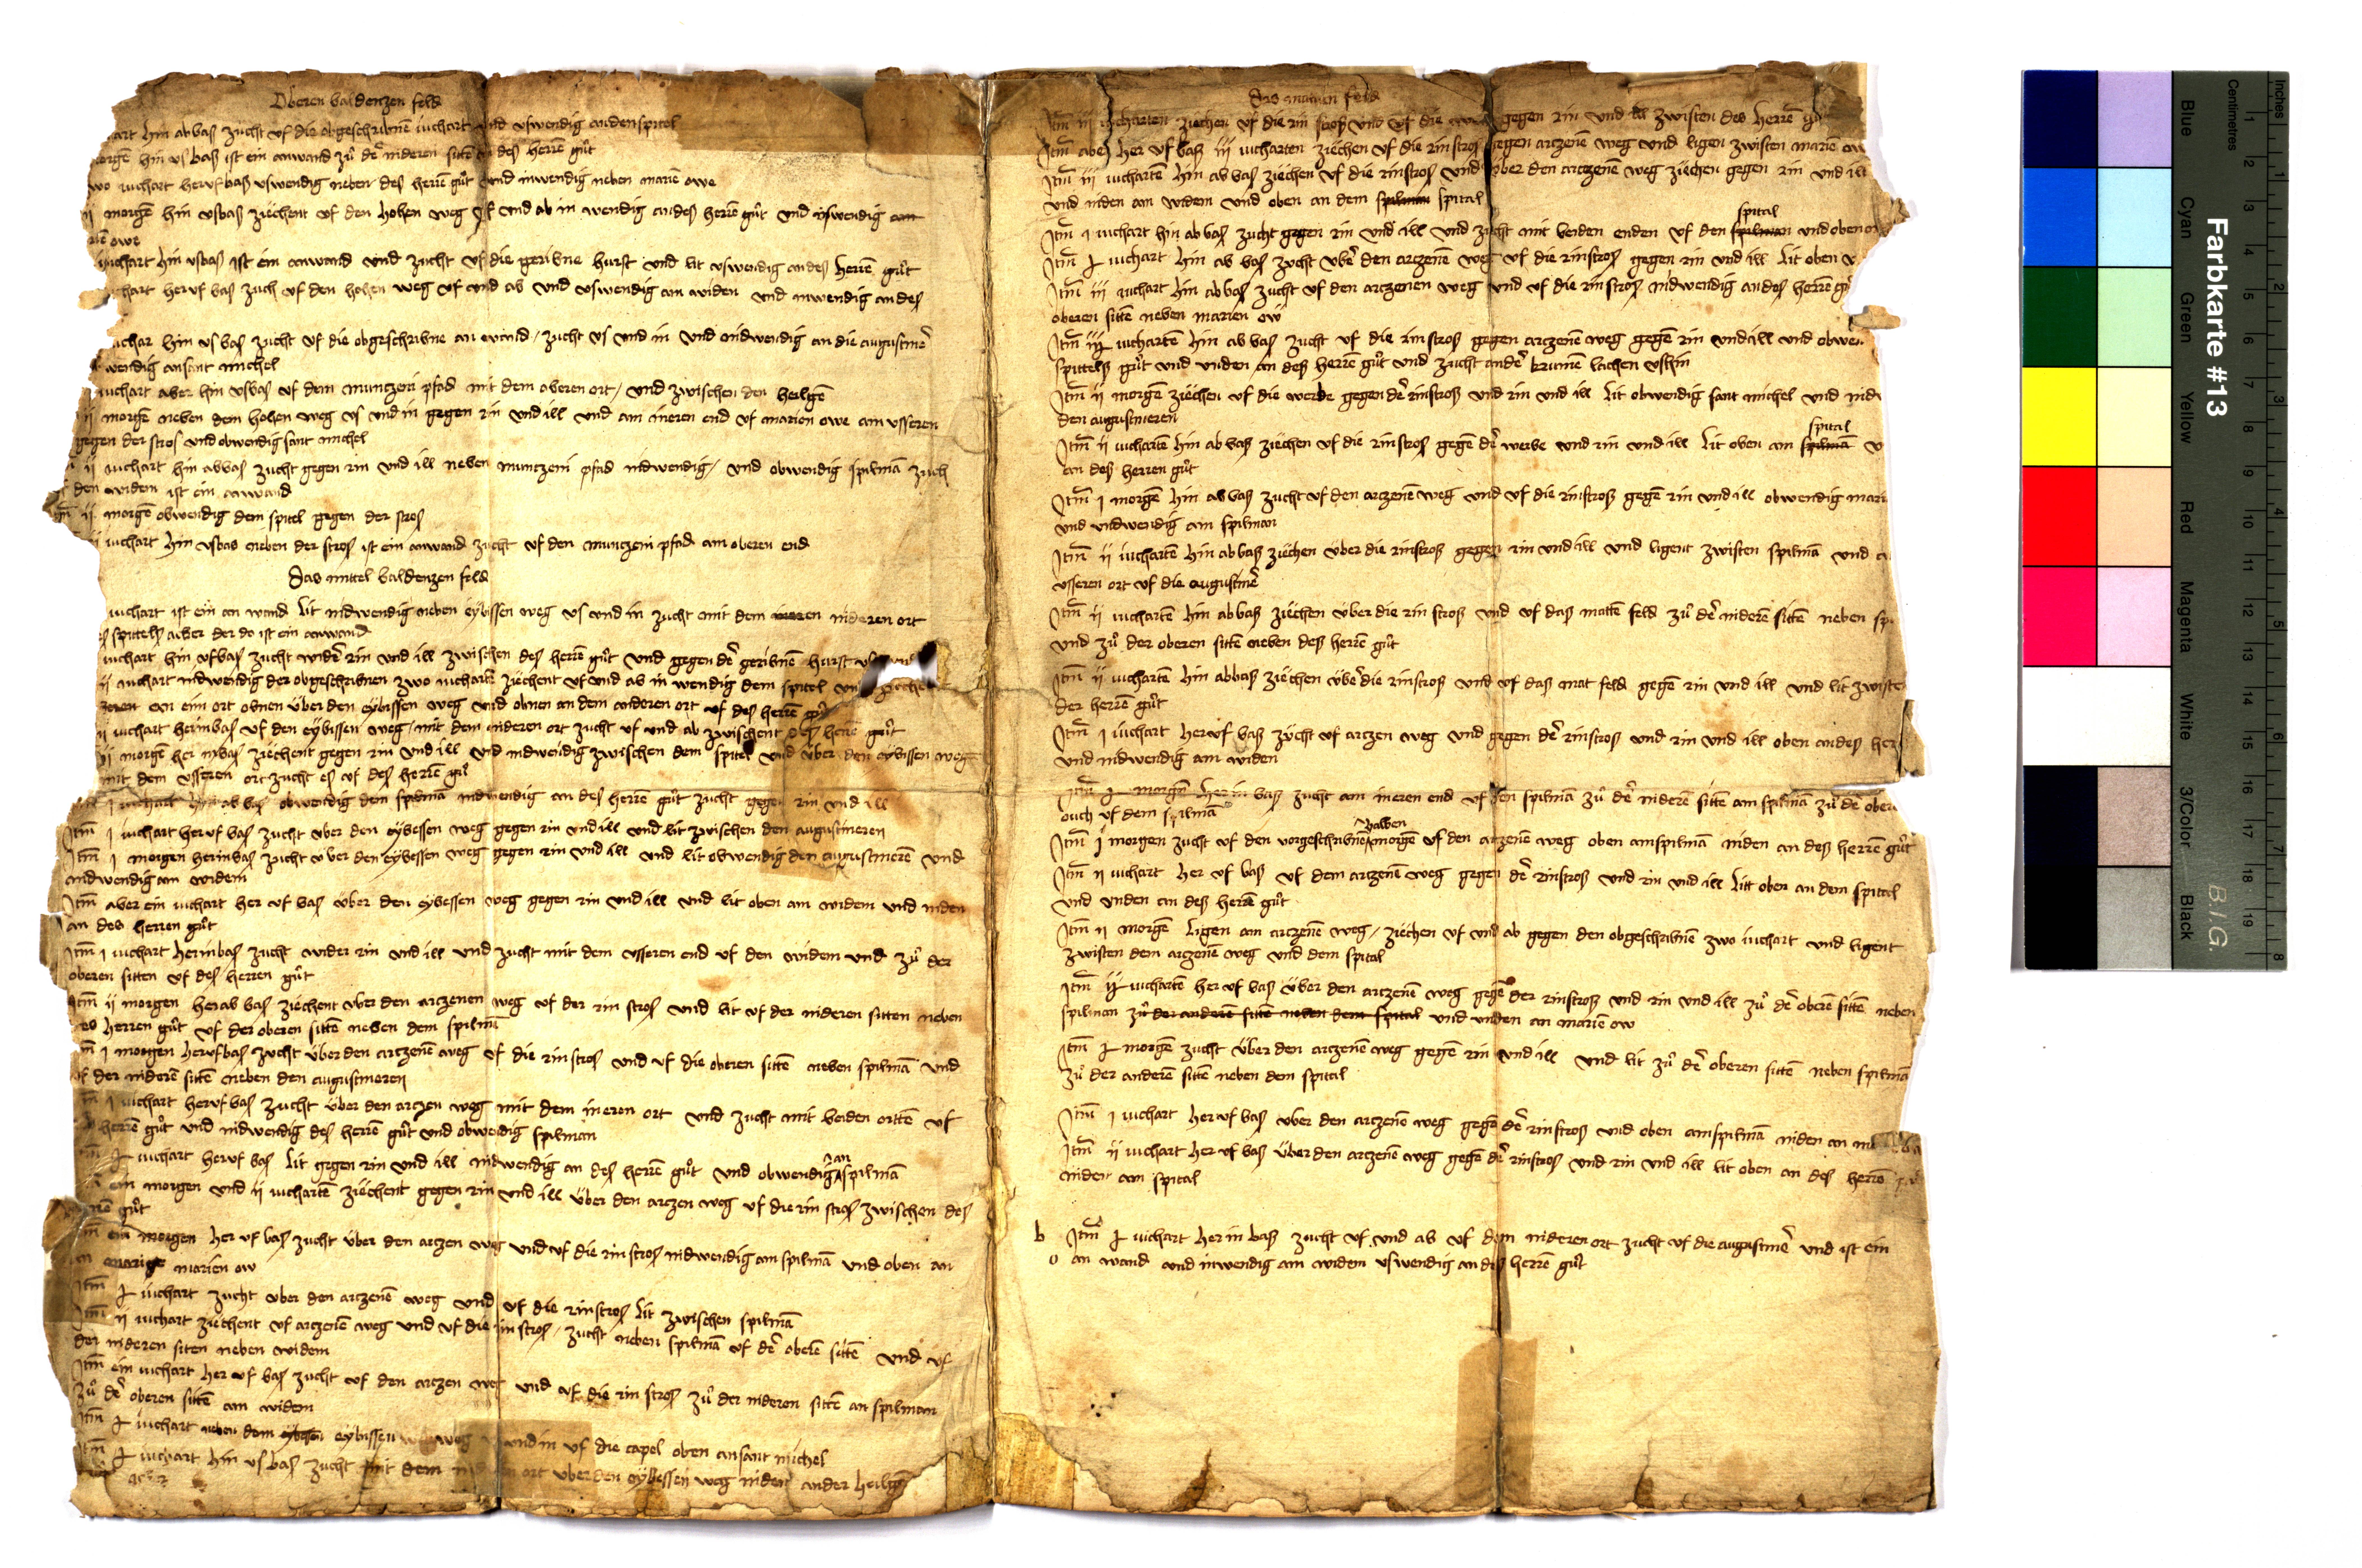 Oberen baldenzen feld
hin abbas zucht uf die obgeschribnē iuchart und uswendig anden spital
hin usbas ist ein anwand zů dē nideren sittē des herrē gůt
iuchart herufbas uswendig neben des herrē gůt und inwendig neben mariē owe
ij morgē hin usbas ziechent uf den hohen weg uf und ab in wendig andes herrē gůt und uswendig an
owe
iuchart hin usbas ist ein anwand und zucht uf die geribne hurst und lit uswendig andes herrē gůt
heruf bas zuch uf den hohen weg uf und ab und uswendig am widen und inwendig an des
hin us bas zucht uf die obgeschribne an wand / zucht us und in und nidwendig an die augustinē
wendig ansant michel
iuchart aber hin usbas uf dem muntzeni pfad mit dem oberen ort / und zwischen den heilgē
ij morgē neben dem hohen weg us und in gegen rin und ill und am ineren end uf marien owe am usseren
gegen der stros und obwendig sant michel
ij iuchart hin abbas zucht gegen rin und ill neben muntzeni pfad nidwendig / und obwendig spilmā zuch
den widem ist ein anwand
ij morgē obwendig dem spitel gegen der stros
iuchart hin usbas neben der stros ist ein anwand zucht uf den muntzeni pfad am oberen end
Das mittel baldenzen feld
iuchart ist ein an wand lit nidwendig neben eybissen weg us und in zucht mit dem nideren ort
spittels acker der do ist ein anwand
iuchart hin ufbas zucht widē rin und ill zwischen des herrē gůt und gegen dē geribnē hurst
ij iuchart nidwendig der obgeschribnen zwo iuchart ziechent uf und ab in wendig dem spitel
an eim ort obnen über den eybissen weg und obnen an dem anderen ort uf des herrē gůt
ij iuchart herinbas uf den eybissen weg / mit dem nideren ort zucht uf und ab zwischent des herrē gůt
ij morgē her inbas ziechent gegen rin und ill und nidwendig zwischen dem spitel und über den eybissen weg
mit dem usseren ort zucht es uf des herrē gůt
j iuchart hin ab bas obwendig dem spilmā nidwendig an des herrē gůt zucht gegen rin und ill
Itm̄ j iuchart heruf bas zucht uber den eybessen weg gegen rin und ill und lit zwischen den augustineren
Itm̄ j morgen herinbas zucht uber den eybessen weg gegen rin und ill und lit obwendig den augustinerē und
nidwendig am widem
Itm̄ aber ein iuchart her uf bas über den eybessen weg gegen rin und ill und lit oben am widem und niden
an des herren gůt
Itm̄ j iuchart herinbas zucht wider rin und ill und zucht mit dem usseren end uf den widem und zů der
oberen sitten uf des herren gůt
Itm̄ ij morgen herab bas ziechent uber den arczenen weg uf der rin stros und lit uf der nideren sitten neben
des herren gůt uf der oberen sitten neben dem spilmā
j morgen herufbas zucht über den arczenē weg uf die rinstros und uf die oberen sittē neben spilmā und
uf der niderē sittē neben den augustineren
j iuchart heruf bas zucht über den arczen weg mit dem ineren ort und zucht mit beiden ortē uf
herrē gůt und nidwendig des herrē gůt und obwendig spilman
iuchart heruf bas lit gegen rin und ill nidwendig an des herrē gůt und obwendig an spilmā
ein morgen und ij iuchartē ziechent gegen rin und ill über den arczen weg uf die rin stros zwischen des
herrē gůt
Itm̄ ein morgen her uf bas zucht über den arczen weg und uf die rin stros nidwendig am spilmā und oben an
marien ow
Itm̄ iuchart zucht uber den arczenē weg und uf die rinstros lit zwischen spilmā
Itm̄ ij iuchart ziechent uf arczenē weg und uf die rin stros / zucht neben spilmā uf dē oberē sittē und uf
der nideren siten neben widem
Itm̄ ein iuchart her uf bas zucht uf den arczen weg und uf die rin stros zů der nideren sittē an spilman
zů dē oberen sittē am widem
Itm̄ iuchart neben dem eybissen weg und in uf die capel oben ansant michel
Itm̄ iuchart hin us bas zucht mit dem ort uber den eybessen weg nident ander heilgē
acker
Das matten feld
Itm̄ iij iucharten ziechen uf die rin stros und uf die gegen rin und ill zwisten des herrē gůt
Itm̄ aber her uf bas iij iucharten ziechen uf die rinstros gegen arczenē weg und ligen zwisten mariē ow
Itm̄ iij iuchartē hin ab bas ziechen uf die rinstros und über den arczenē weg ziechen gegen rin und ill
und niden am widem und oben an dem spilman spital
Itm̄ j iuchart hin ab bas zucht gegen rin und ill und zucht mit beiden enden uf den spilman spital und oben
Itm̄ iuchart hin ab bas zucht ubē den arczenē weg uf die rinstros gegen rin und ill lit oben
Itm̄ iij iuchart hin abbas zucht uf den arczenen weg und uf die rin stros nidwendig andes herrē gůt
oberen sittē neben marien ow
Itm̄ iuchartē hin ab bas zucht uf die rinstros gegen arczenē weg gegē rin und ill und obwen
spittels gůt und unden an des herrē gůt und zucht andē krumē lachen ushin
Itm̄ ij morgē ziechen uf die werbe gegen dē rinstros und rin und ill lit obwendig sant michel und nid
den augustineren
Itm̄ ij iuchartē hin ab bas ziechen uf die rinstros gegē dē werbe und rin und ill lit oben am spilmā spital
an des herren gůt
Itm̄ j morgē hin ab bas zucht uf den arczenē weg und uf die rinstros gegē rin und ill obwendig mari
und nidwendig am spilman
Itm̄ ij iuchartē hin abbas ziechen über die rinstros gegen rin und ill und ligent zwisten spilmā und
usseren ort uf die augustinē
Itm̄ ij iuchartē hin abbas ziechen über die rin stros und uf das mattē feld zů dē niderē sittē neben
und zů der oberen sittē neben des herrē gůt
Itm̄ ij iuchartē hin abbas ziechen übē die rinstros und uf das mat feld gegē rin und ill und lit zwiste
der herrē gůt
Itm̄ j iuchart heruf bas zucht uf arczen weg und gegen dē rinstros und rin und ill oben andes her
und nidwendig am widen
Itm̄ morgē her in bas zucht am ineren end uf den spilmā zů dē niderē sittē am spilmā zů dē ober
ouch uf dem spilmā
Itm̄ j morgen zucht uf den vorgeschribnē halben morgē uf den arczenē weg oben am spilmā niden an des herrē gůt
Itm̄ ij iuchart her uf bas uf dem arczenē weg gegen dē rinstros und rin und ill litt oben an dem spittal
und unden an des herrē gůt
Itm̄ ij morgē ligen am arczenē weg / ziechen uf und ab gegen den obgeschribnē zwo iuchart und ligent
zwisten dem arczenē weg und dem spital
Itm̄ iuchartē her uf bas über den arczenē weg gegē der rinstros und rin und ill zů dē oberē sittē neben
spilman zů der anderē sittē neben dem spital und unden an mariē ow
Itm̄ morgē zucht über den arczenē weg gegē rin und ill und lit zů dē oberen sittē neben spilmā
zů der anderē sittē neben dem spittal
Itm̄ j iuchart her uf bas uber den arczenē weg gegē dē rinstros und oben am spilmā niden an
Itm̄ ij iuchart her uf bas über den arczenē weg gegē dē rinstros und rin und ill lit oben an des herrē
niden am spital
b Itm̄ iuchart her in bas zucht uf und ab uf dem nideren ort zucht uf die augustinē und ist ein
o an wand und inwendig am widem uswendig an des herrē gůt
Farbkarte #13
B.I.G.
Blue Cyan Green Yellow Red Magenta White 3/Color Black
Centimetres
Inches
1 2 3 4 5 6 7 8 9 10 11 12 13 14 15 16 17 18 19
1 2 3 4 5 6 7 8